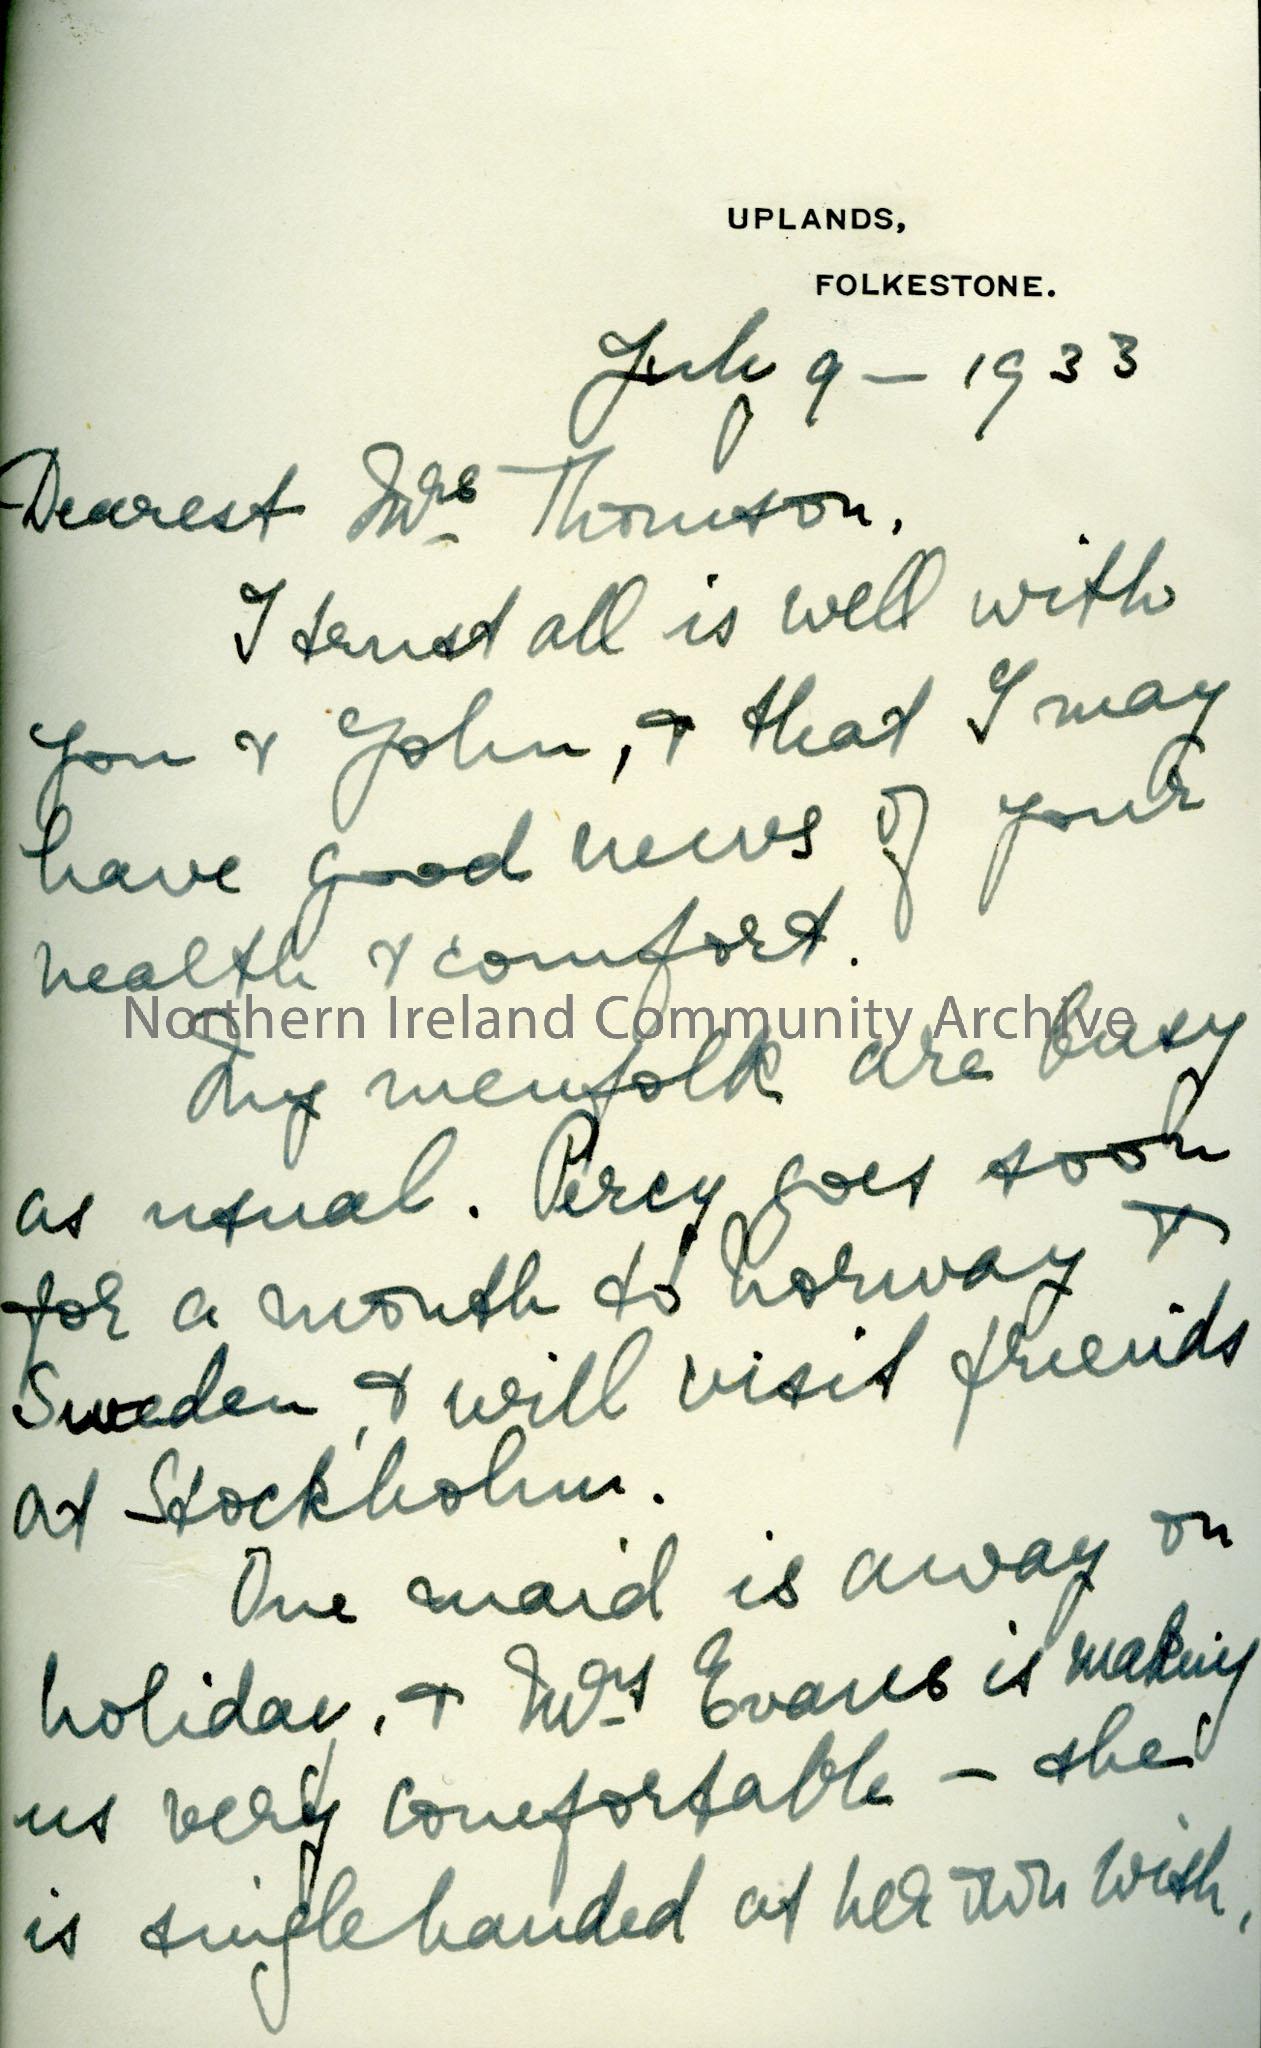 UPLANDS,
FOLKESTONE.
July 9 – 1933
Dearest Mrs Thomson,
I trust all is well with
you & John, & that I may
have good news of your
health & comfort.
Northern Ireland Community Archive
My menfolk are busy
as usual. Percy goes soon
for a month to Norway &
Sweden, & will visit friends
at Stockholm.
One maid is away on
holiday, & Mrs Evans is making
us very comfortable – she
is singlehanded at her own wish,